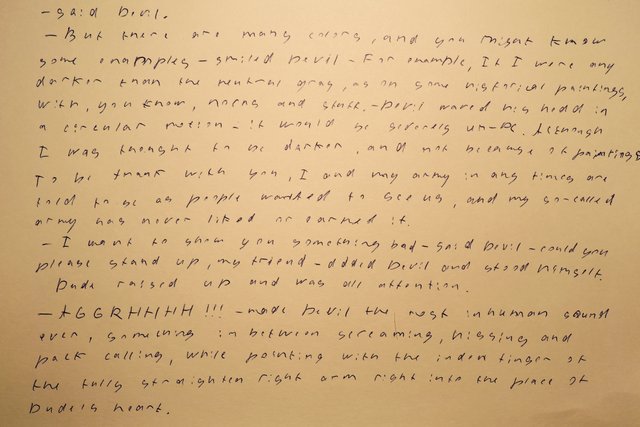 - said Devil.
- But there are many colors, and you might know
some examples - smiled Devil - For example, If I were any
darker than the neutral gray, as on some historical paintings,
with, you know, horns and stuff. - Devil waved his hedd in
a circular motion - it would be severely un-PC. Although
I was thought to be darker, and not because of paintings
To be frank with you, I and my army in any times are
told to be as people wanted to see us, and my so-called
army has never liked or earned it.
- I want to show you something bad - said Devil - could you
please stand up, my friend - ddded Devil and stood himself.
Dude raised up and was all attention.
- AGGRHHHH !!! - made Devil the most inhuman sound
ever, something in between screaming, hissing and
pack calling, while pointing with the index finger of
the fully straighten right arm right into the place of
Dude's heart.